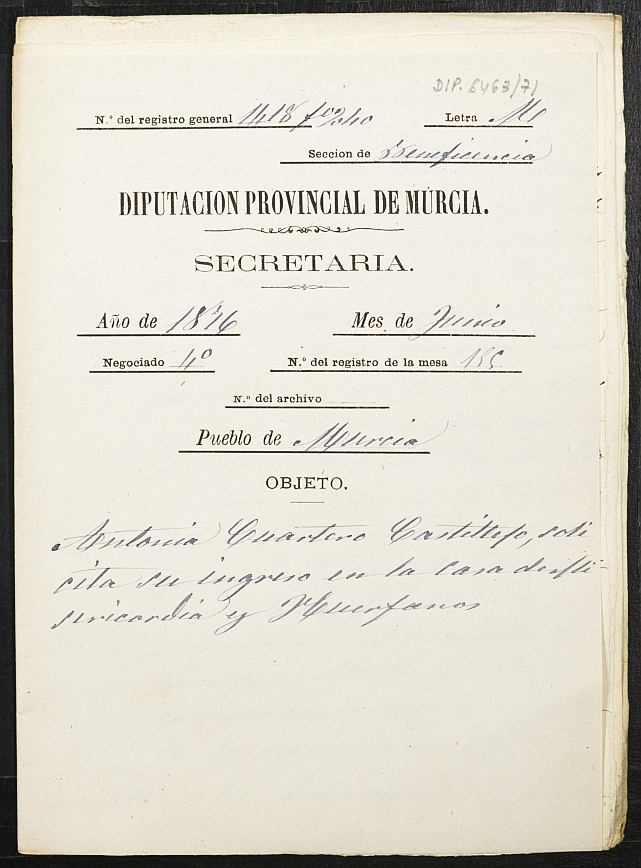 DIP. 6463/71
N.º del registro general 1418 fº 240 Letra M
Seccion de Beneficencia
DIPUTACION PROVINCIAL DE MÚRCIA.
SECRETARIA.
Año de 1876 Mes de Junio
Negociado 4º N.º del registro de la mesa 185
N.º del archivo
Pueblo de Murcia
OBJETO.
Antonia Cuartero Castillejo, soli
cita su ingreso en la casa de Mi-
sericordia y Huerfanos